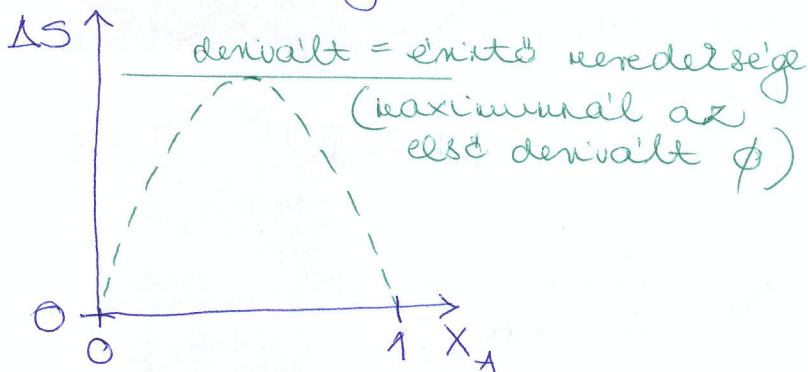 ΔS
derivált = érintő meredeksége
(maximumnál az
első derivált ϕ)
0
0
1
X_A